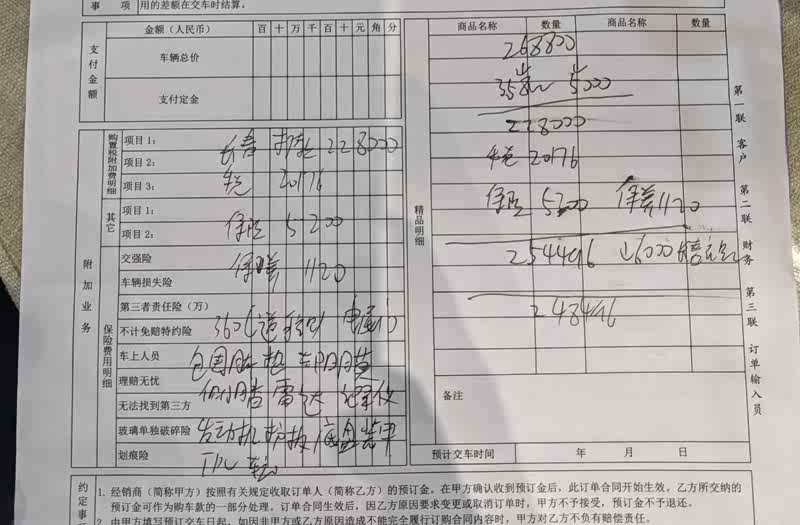 事 项 用的差额在交车时结算。
支付金额 金额（人民币） 百 十 万 千 百 十 元 角 分
车辆总价
支付定金
附加业务
购置税附加费明细 项目1： 228000
项目2：
项目3： 20176
其它 项目1：
项目2： 保险 5200
保险费用明细 交强险 1120
车辆损失险
第三者责任险（万）
不计免赔特约险 360
车上人员
理赔无忧 雷达 记录仪
无法找到第三方
玻璃单独破碎险 发动机护板 底盘装甲
划痕险
精品明细 商品名称 数量 商品名称 数量
268800
5000
228000
20176
保险 5200 1120
254496 6000
248496
备注
预计交车时间 年 月 日
第一联 客户 第二联 财务 第三联 订单输入员
约定事
1. 经销商（简称甲方）按照有关规定收取订单人（简称乙方）的预订金。在甲方确认收到预订金后，此订单合同开始生效。乙方所交纳的
预订金可作为购车款的一部分处理。订单合同生效后，因乙方原因要求变更或取消订单时，甲方不予接受，预订金不予退还。
2. 由甲方填写预订交车日起，如因非甲方或乙方原因造成不能完全履行订购合同内容时，甲方对乙方不负有赔偿责任。